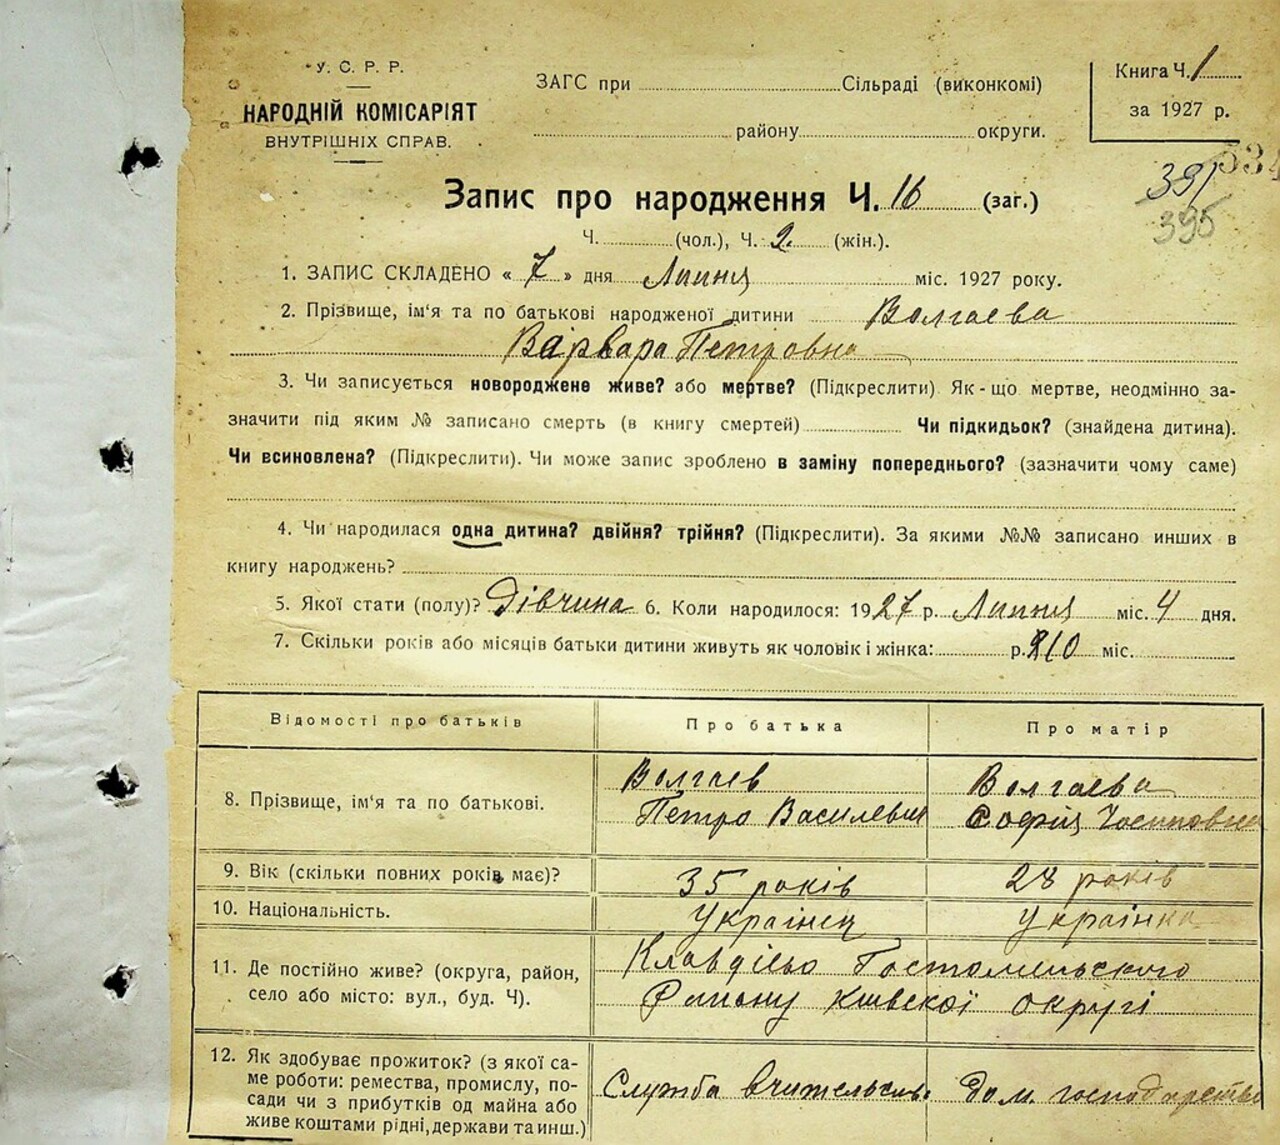 У. С. Р. Р.
НАРОДНІЙ КОМІСАРІЯТ
ВНУТРІШНІХ СПРАВ.
ЗАГС при Сільраді (виконкомі)
району округи.
Книга Ч. 1
за 1927 р.
534
391
395
Запис про народження Ч. 16 (заг.)
Ч. (чол.), Ч. 2. (жін.).
1. ЗАПИС СКЛАДЕНО « 7 » дня Липня міс. 1927 року.
2. Прізвище, ім'я та по батькові народженої дитини Волгаева
Варвара Петровна
3. Чи записується новороджене живе? або мертве? (Підкреслити). Як-що мертве, неодмінно за-
значити під яким № записано смерть (в книгу смертей) Чи підкидьок? (знайдена дитина).
Чи всиновлена? (Підкреслити). Чи може запис зроблено в заміну попереднього? (зазначити чому саме)
4. Чи народилася одна дитина? двійня? трійня? (Підкреслити). За якими №№ записано инших в
книгу народжень?
5. Якої стати (полу)? Дівчина 6. Коли народилося: 1927 р. Липня міс. 4 дня.
7. Скільки років або місяців батьки дитини живуть як чоловік і жінка: р. 10 міс.
Відомості про батьків Про батька Про матір
8. Прізвище, ім'я та по батькові.
Волгаев
Петро Василевич
Волгаева
Софія Йосиповна
9. Вік (скільки повних років має)? 35 років 28 років
10. Національність. Українец українка
11. Де постійно живе? (округа, район,
село або місто: вул., буд. Ч).
Клавдієво Гостомельского
Району Київскої округі
12. Як здобуває прожиток? (з якої са-
ме роботи: ремества, промислу, по-
сади чи з прибутків од майна або
живе коштами рідні, держави та инш.)
Служба вчительска
Дом. господарство